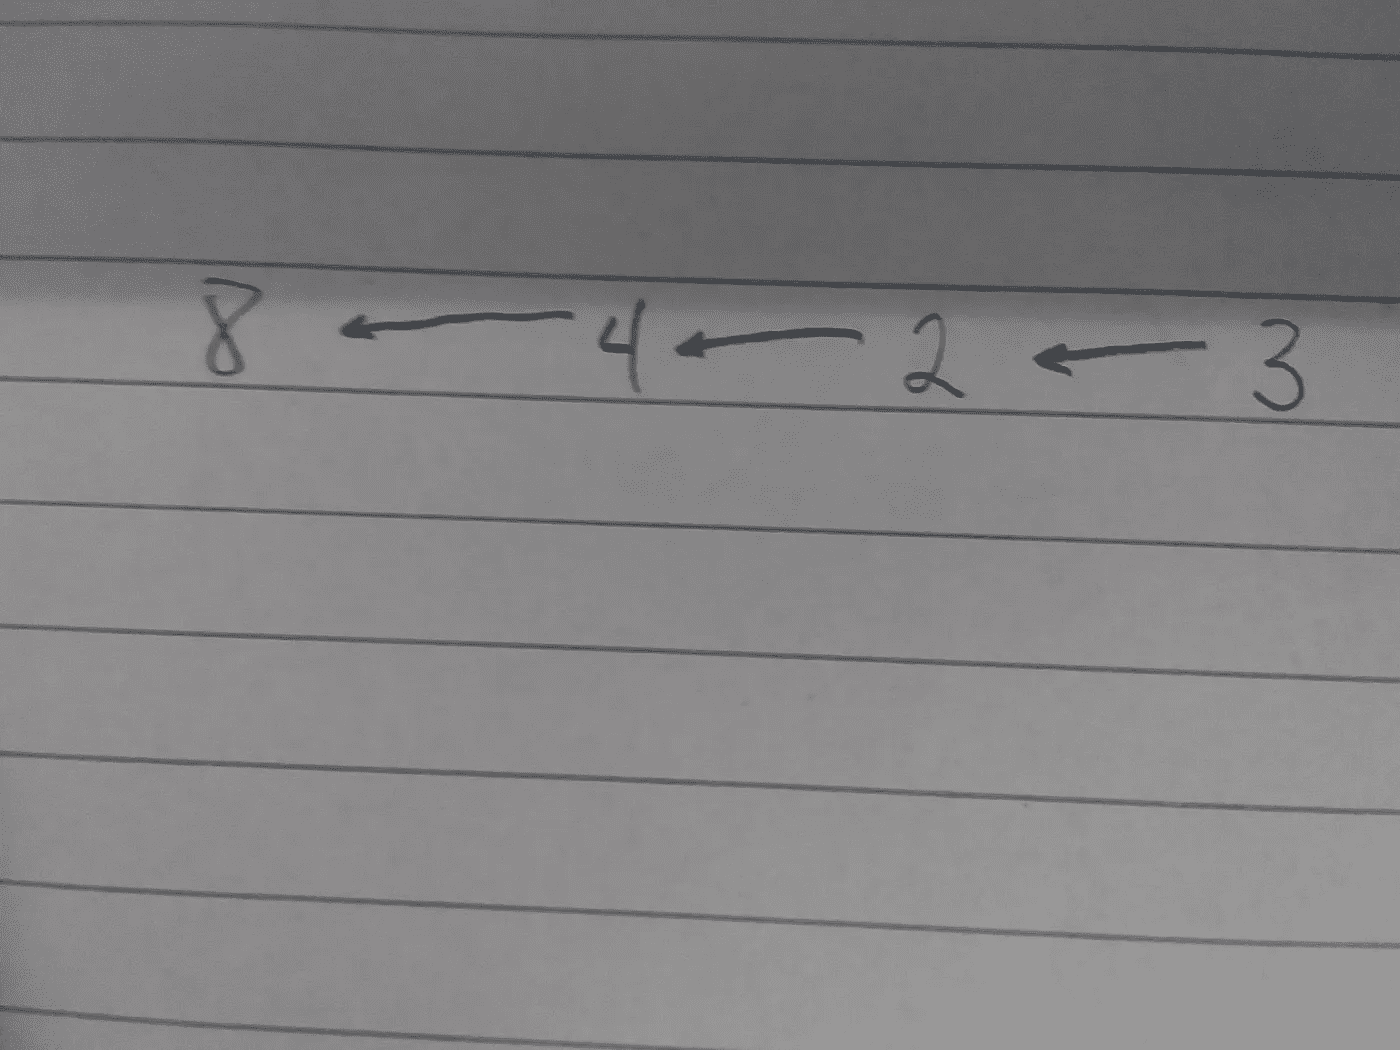 8 ← 4 ← 2 ← 3